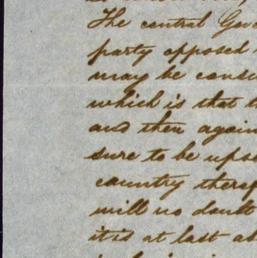 The central Gov
party opposed
may be cons
which is that t
and then again
sure to be ups
country theref
will no doubt
it is at last a